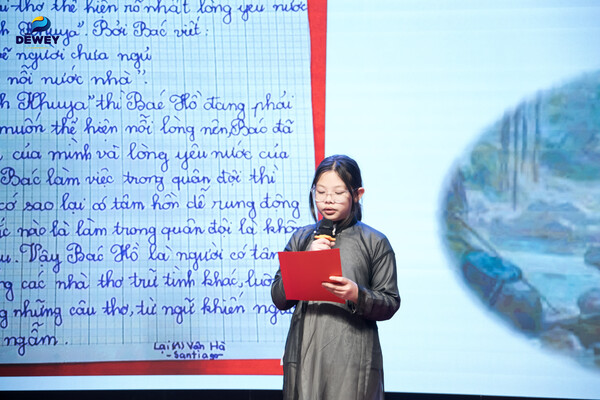 DEWEY
thơ thể hiện rõ nhất lòng yêu nước
Khuya". Bởi Bác viết:
người chưa ngủ
nỗi nước nhà".
Khuya" thì Bác Hồ đang phải
muốn thể hiện nỗi lòng nên, Bác đã
của mình và lòng yêu nước của
Bác làm việc trong quân đội thì
sao lại có tâm hồn dễ rung động
nào là làm trong quân đội là khô
Vậy Bác Hồ là người có tâm
các nhà thơ trữ tình khác, luô
những câu thơ, từ ngữ khiến ng
ngẫm.
Lại Vân Hà
- Santiago